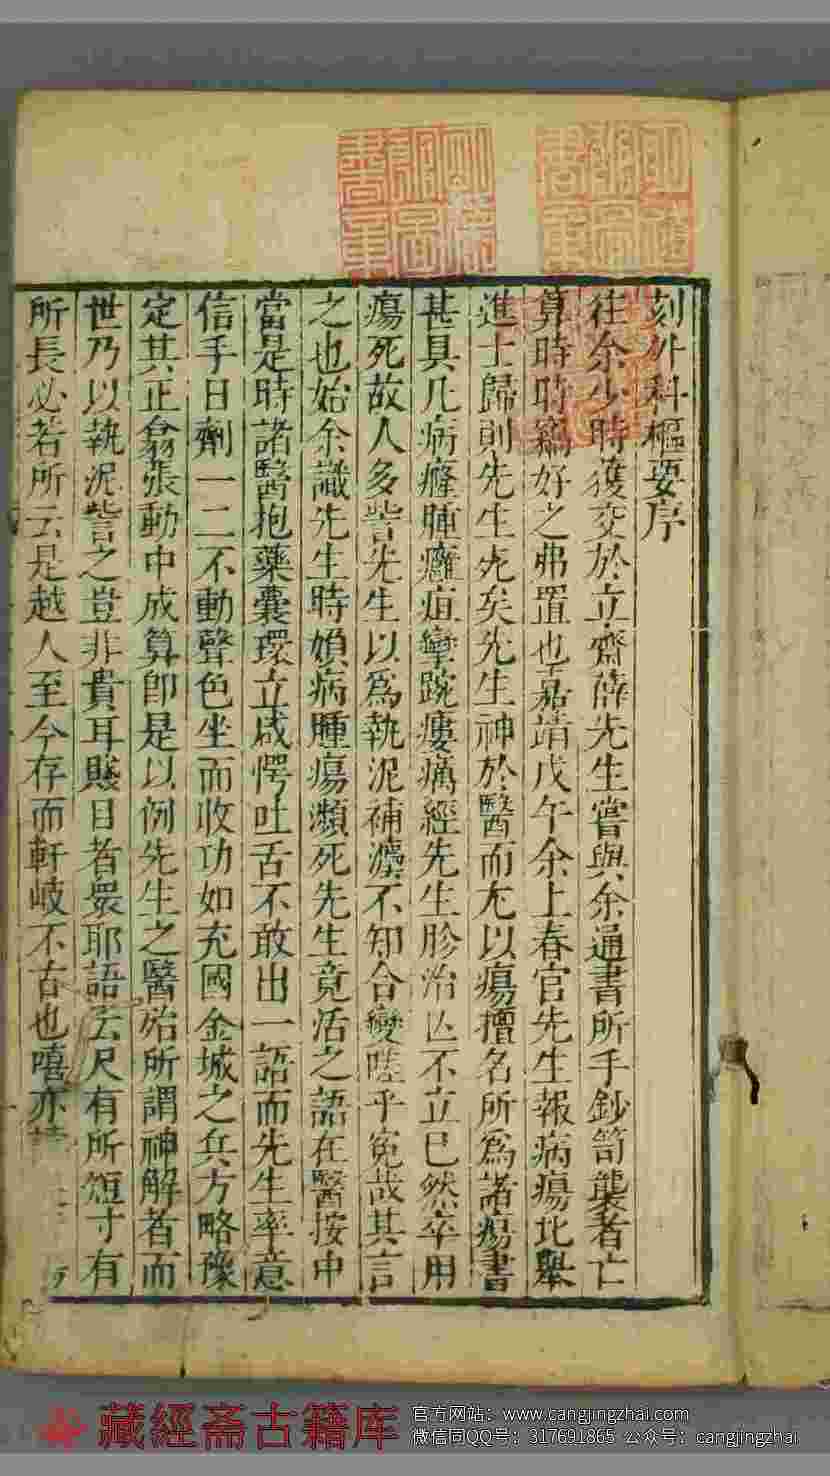 刻外科樞要序
往余少時獲交於立齋薛先生嘗與余通書所手鈔笥襲者亡
算時時竊好之弗置也嘉靖戊午余上春官先生報病瘍比舉
進士歸則先生死矣先生神於醫而尤以瘍擅名所爲諸瘍書
甚具凡病癰腫癰疽攣踠瘻癘經先生胗治亾不立已然卒用
瘍死故人多訾先生以爲執泥補瀉不知合變嗟乎寃哉其言
之也始余識先生時媍病腫瘍瀕死先生竟活之語在醫按中
當是時諸醫抱藥囊環立咸愕吐舌不敢出一語而先生率意
信手日劑一二不動聲色坐而收功如充國金城之兵方略豫
定其正翕張動中成算卽是以例先生之醫殆所謂神解者而
世乃以執泥訾之豈非貴耳賤目者衆耶語云尺有所短寸有
所長必若所云是越人至今存而軒岐不古也嘻亦
藏經斋古籍库
官方网站：www.cangjingzhai.com
微信同QQ号：317691865 公众号：cangjingzhai